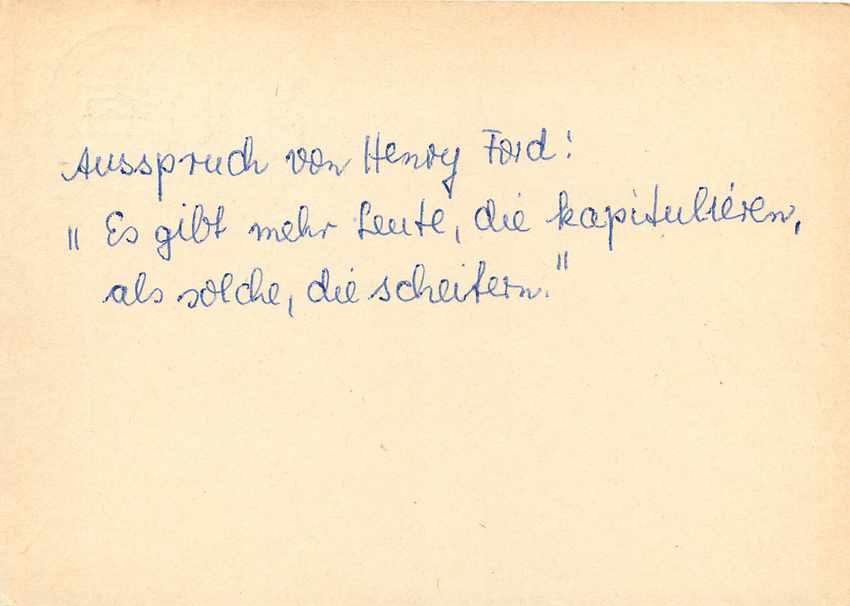 Ausspruch von Henry Ford:
"Es gibt mehr Leute, die kapitulieren,
als solche, die scheitern."